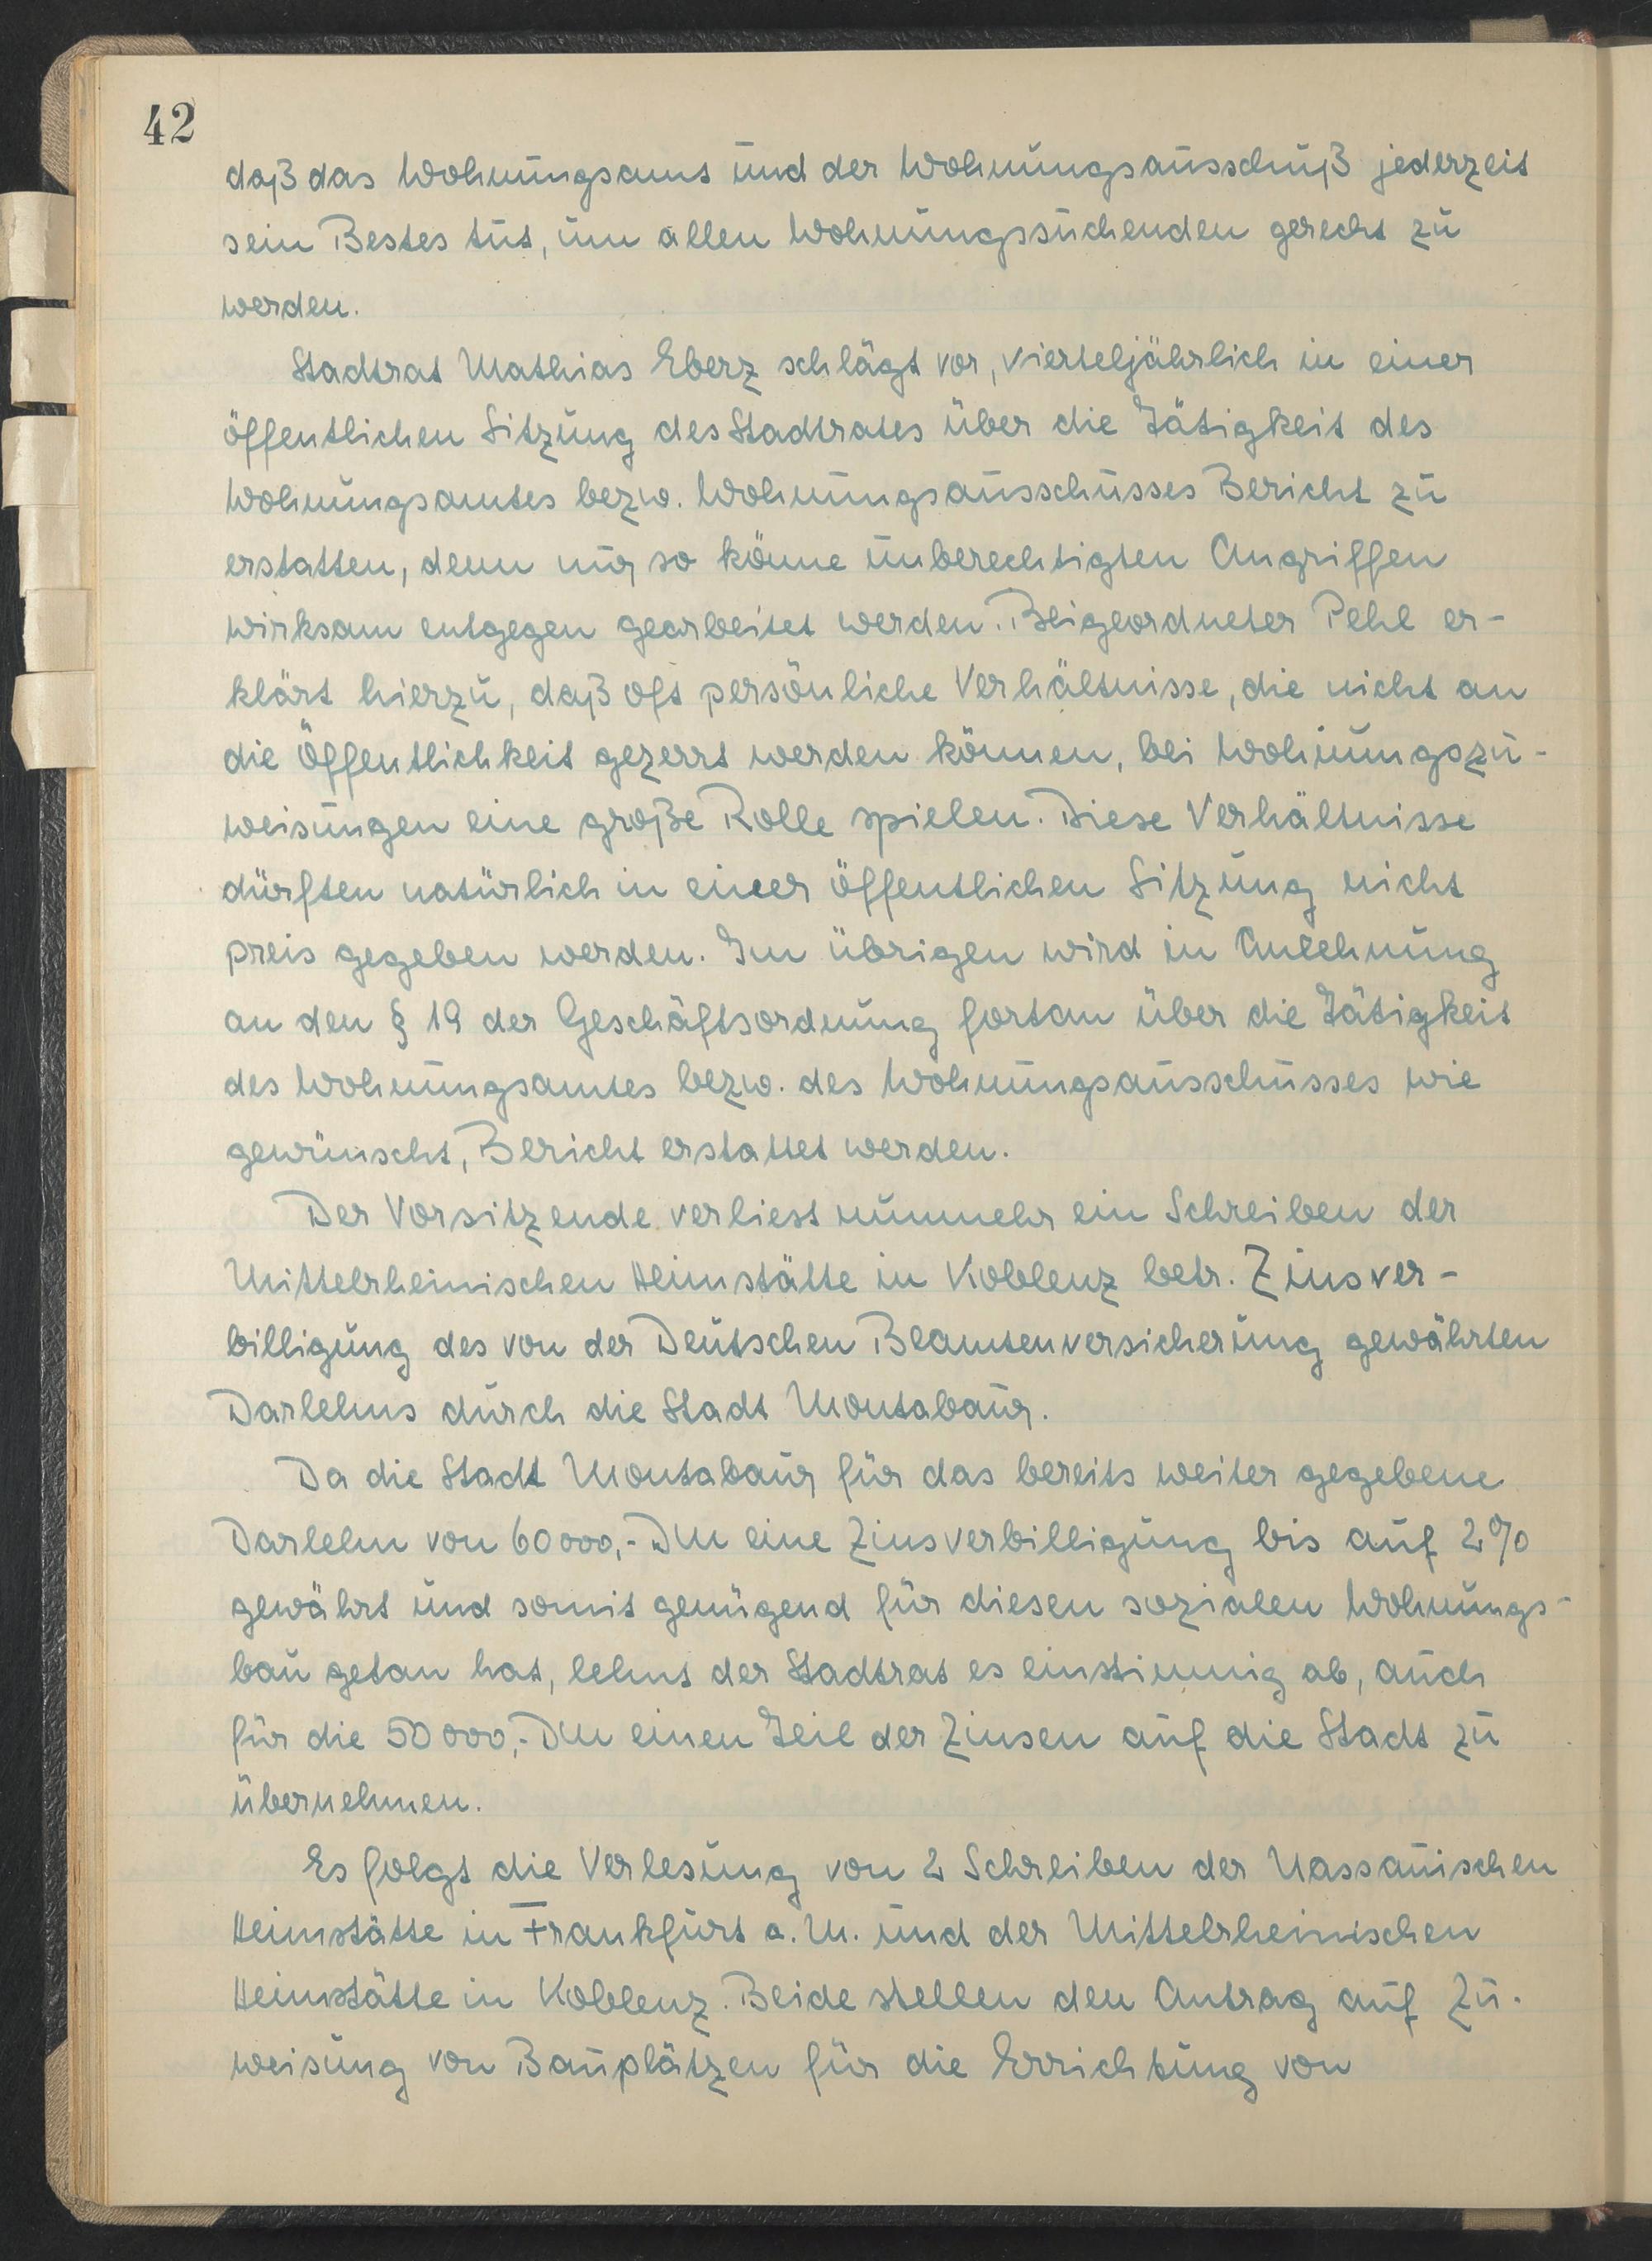 42
daß das Wohnungsamt und der Wohnungsausschuß jederzeit
sein Bestes tut, um allen Wohnungssuchenden gerecht zu
werden.
Stadtrat Mathias Eberz schlägt vor, vierteljährlich in einer
öffentlichen Sitzung des Stadtrates über die Tätigkeit des
Wohnungsamtes bezw. Wohnungsausschusses Bericht zu
erstatten, denn nur so könne unberechtigten Angriffen
wirksam entgegen gearbeitet werden. Beigeordneter Pehl er-
klärt hierzu, daß oft persönliche Verhältnisse, die nicht an
die Öffentlichkeit gezerrt werden können, bei Wohnungszu-
weisungen eine große Rolle spielen. Diese Verhältnisse
dürften natürlich in einer öffentlichen Sitzung nicht
preis gegeben werden. Im übrigen wird in Anlehnung
an den § 19 der Geschäftsordnung fortan über die Tätigkeit
des Wohnungsamtes bezw. des Wohnungsausschusses wie
gewünscht, Bericht erstattet werden.
Der Vorsitzende verliest nunmehr ein Schreiben der
Mittelrheinischen Heimstätte in Koblenz betr. Zinsver-
billigung des von der Deutschen Beamtenversicherung gewährten
Darlehns durch die Stadt Montabaur.
Da die Stadt Montabaur für das bereits weiter gegebene
Darlehn von 60000,- DM eine Zinsverbilligung bis auf 2%
gewährt und somit genügend für diesen sozialen Wohnungs-
bau getan hat, lehnt der Stadtrat es einstimmig ab, auch
für die 50000,- DM einen Teil der Zinsen auf die Stadt zu
übernehmen.
Es folgt die Verlesung von 2 Schreiben der Nassauischen
Heimstätte in Frankfurt a. M. und der Mittelrheinischen
Heimstätte in Koblenz. Beide stellen den Antrag auf Zu-
weisung von Bauplätzen für die Errichtung von